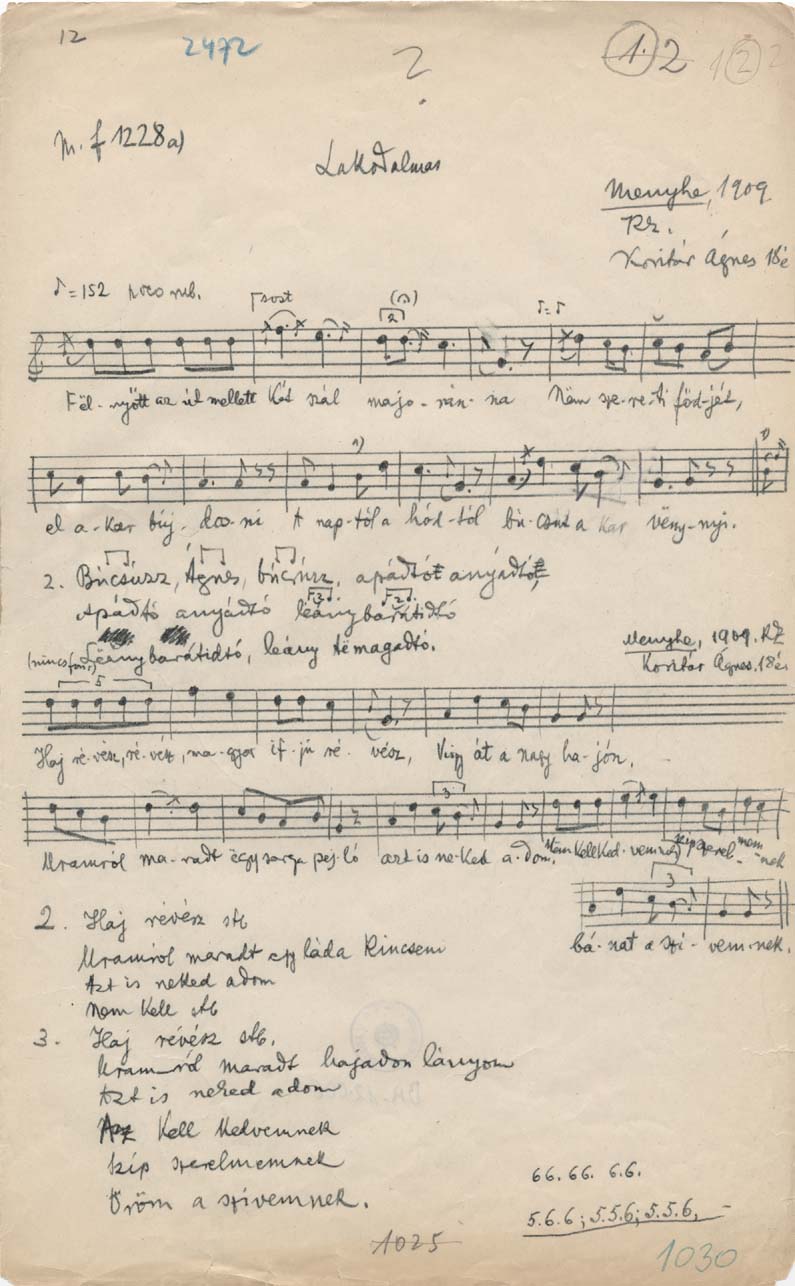 12
2472
2
1. 2 1 2 2
M. f 1228a)
Lakodalmas
Menyhe, 1909
Kz.
Koritár Ágnes 18é
♪=152 poco rub.
sost
2
♪=♪
Föl-nyőtt az út mellett Két szál majo-ran-na Nëm sze-re-ti föd-jét,
1)
1)
el a-kar búj-dos-ni A nap-tól a hód-tól bú-csut a kar vënny-nyi.
2. Búcsúzz, Ágnes, búcsúzz, apádtó anyádtó,
3 2
Apádtó anyádtó leánybarátidtó
Lëánybarátidtó, leány témagadtó.
(nincs fon.)
Menyhe, 1909. KZ
Koritár Ágnes. 18é
5
Haj ré-vész, ré-vész, ma-gyar if-jú ré-vész, Vigy át a nagy ha-jón,
3
Uramról ma-radt ëgy sarga pej-ló azt is ne-ked a-dom. Nem kell ked-vemnek szép szerel-mem-nek
3
bá-nat a szí-vem-nek.
2. Haj révész stb
Uramról maradt egy láda kincsem
Azt is neked adom
Nem kell stb
3. Haj révész stb.
Uramról maradt hajadon lányom
Azt is neked adom
Az kell kedvemnek
szép szerelmemnek
Öröm a szívemnek.
66. 66. 6.6.
5.6.6; 5.5.6; 5.5.6,
1025
1030